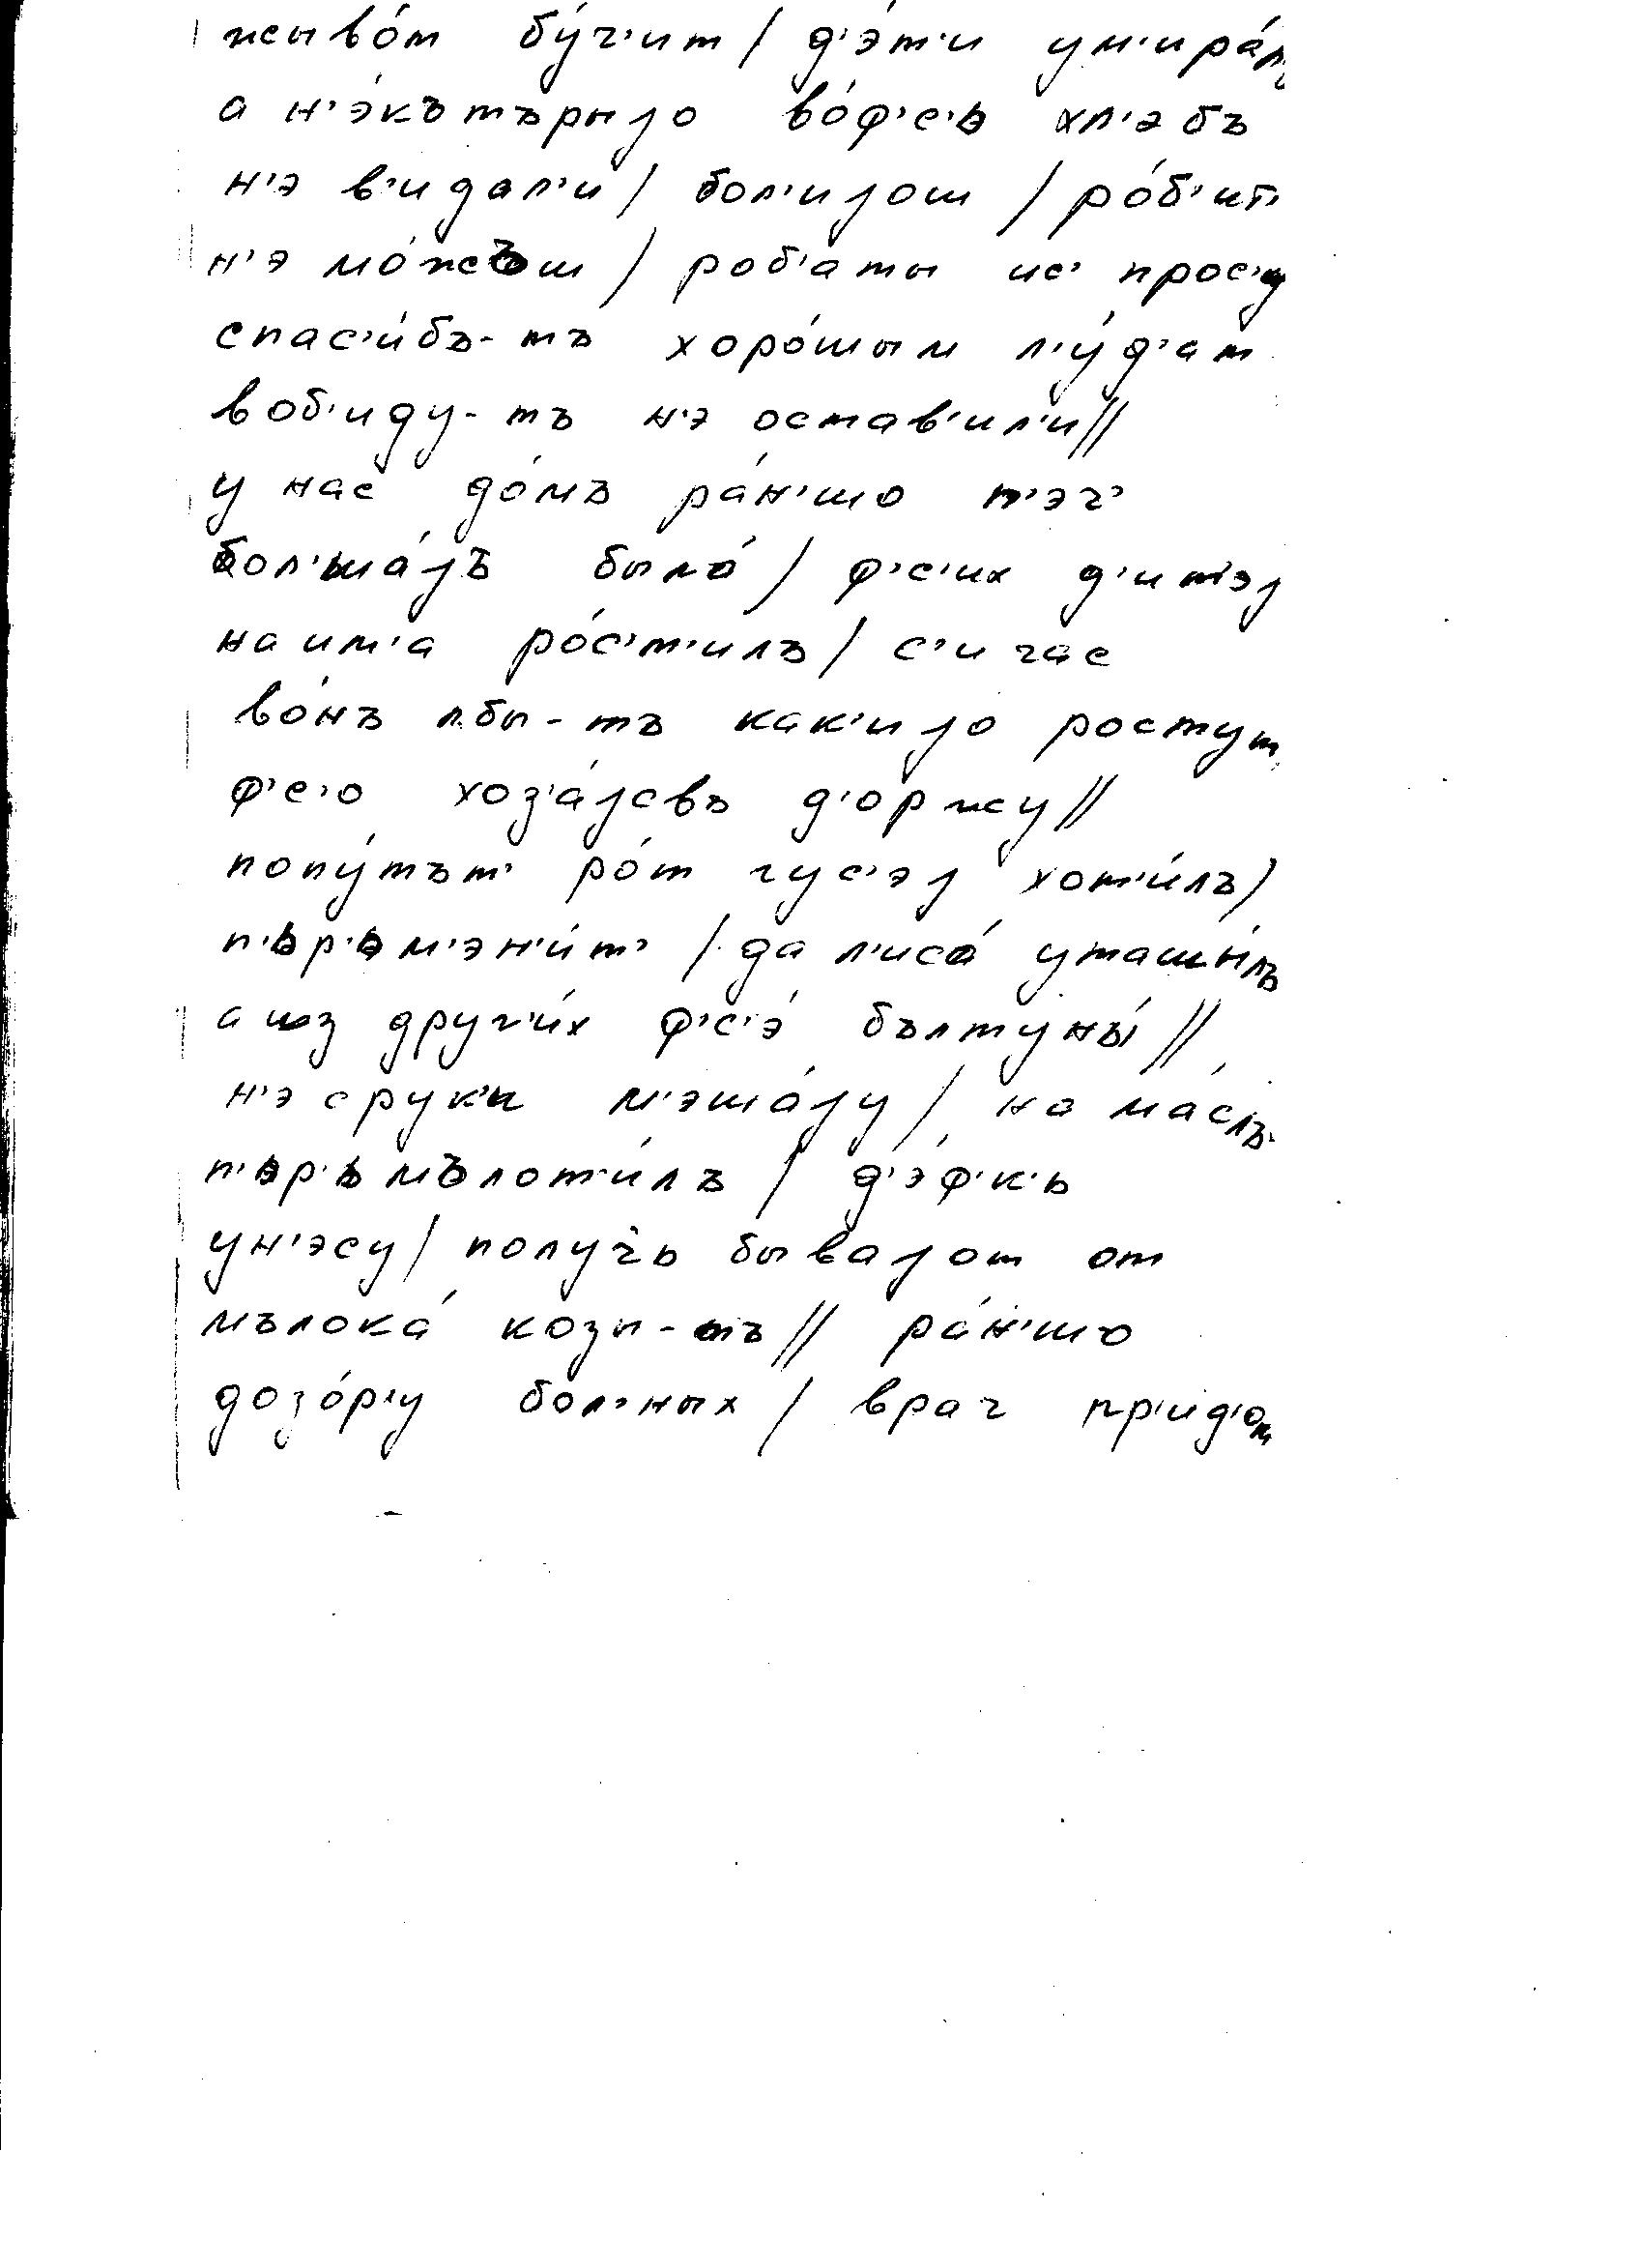 жыво́т бу́ч'ит / д'э́т'и ум'ира́л
а н'э́кътърыjо во́ф'с'ь хл'эбъ
н'э в'идал'и / бол'иjош / ро́б'ит'
н'э мо́жъш / роб'аты ис' прос'у
спас'и́бъ-тъ хоро́шым л'у́д'ам
воб'иду-тъ н'э остав'ил'и //
у нас до́мъ ра́н'шо п'эч'
бол'ша́jъ была́ / ф'с'их д'ит'эj
на им'а ро́с'т'илъ / с'ичас
во́нъ лбы-тъ как'иjо ростут
ф'с'о хоз'а́jсвъ д'оржу //
попу́тът' ро́т гус'эj хот'и́лъ /
п'ьр'ьм'эн'и́т' / да л'иса́ уташы́лъ
а из друг'и́х ф'с'э́ бълтуны́ //
н'э с рук'и м'эша́jу / на ма́слъ
п'ьр'ьмълот'и́лъ / д'э́ф'к'ь
ун'эсу / получ'ь бываjот от
мълока́ козы-тъ // ра́н'шо
дозо́р'у бол'ных / врач пр'ид'от